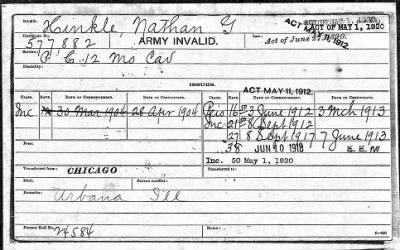 Hinkle, Nathan G
ACT OF MAY 1, 1920
Certificate No.
577882
ARMY INVALID.
Act of June 27, 1890.
ACT MAY 11, 1912.
Service:
P. C. 12 Mo Cav
ACT MAY 11, 1912.
CLASS. RATE. DATE OF COMMENCEMENT. DATE OF CERTIFICATE. CLASS. RATE. DATE OF COMMENCEMENT. DATE OF CERTIFICATE.
Inc 30 Mar 1904 28 Apr 1904 Reis 16 50 3 June 1912 3 Mch 1913
Inc 21 50 8 Sept 1912
27 8 Sept 1917 7 June 1913
38 JUN 10 1918 E.E.M
Inc. 50 May 1, 1920
Transferred from CHICAGO
Remarks:
Urbana Ill
Former Roll No.
24584